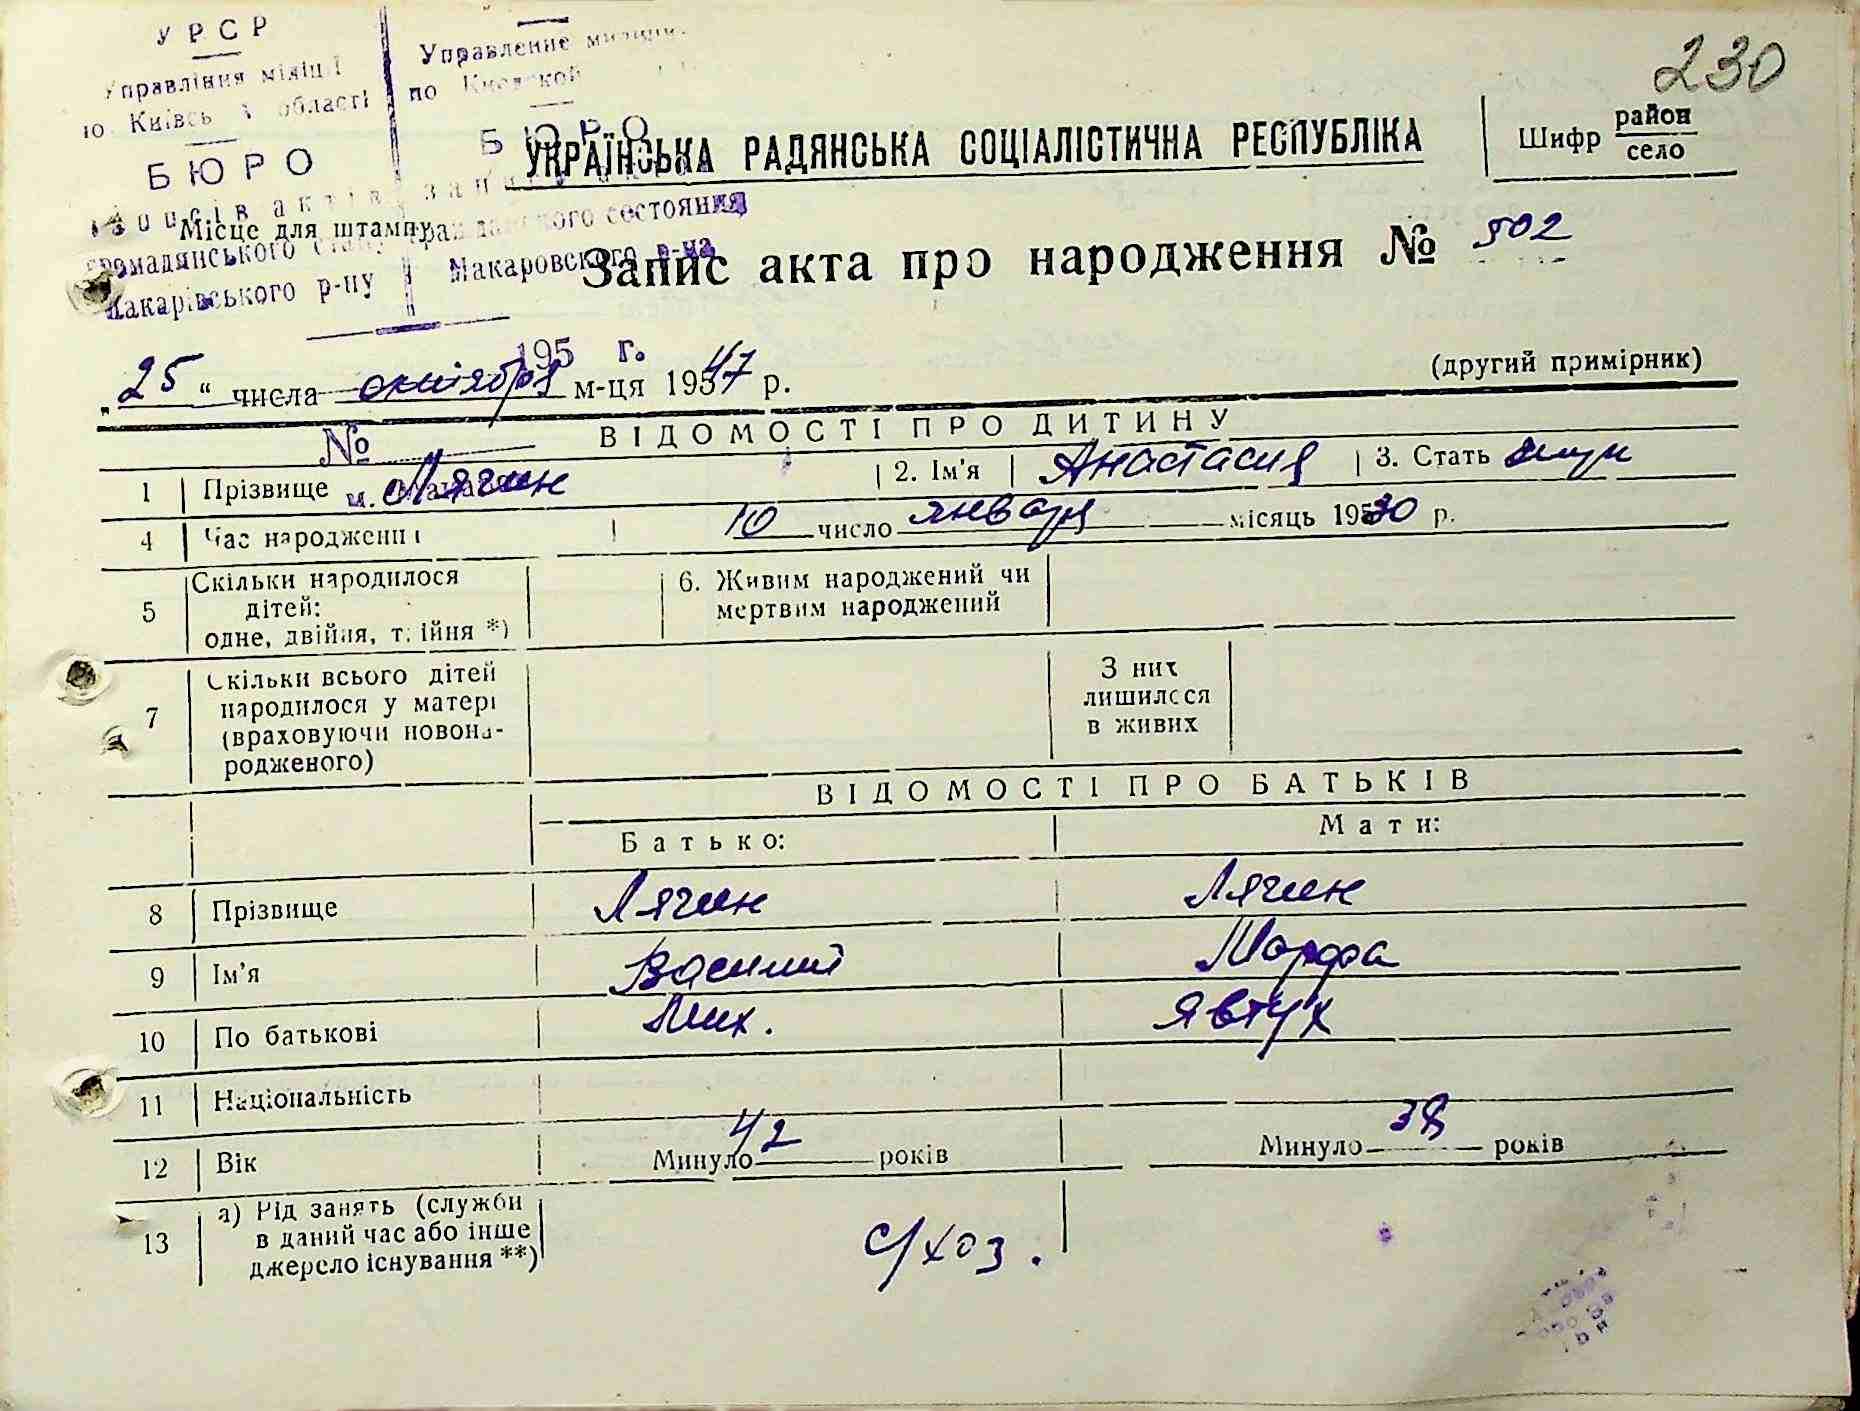 230
УРСР
Управління міліції
Київсь області
БЮРО
громадянського стану
Макарівського р-ну
Управление милиции
по Киевской
БЮРО
гражданского состояния
Макаровского р-на
195 г.
№
УКРАЇНСЬКА РАДЯНСЬКА СОЦІАЛІСТИЧНА РЕСПУБЛІКА
Шифр район
село
Місце для штампу
Запис акта про народження № 502
„25“ числа октября м-ця 1947 р.
(другий примірник)
ВІДОМОСТІ ПРО ДИТИНУ
1 Прізвище Лягин 2. Ім'я Анастасия 3. Стать
4 Час народження 10 число января місяць 1930 р.
5 Скільки народилося
дітей:
одне, двійня, трійня *)
6. Живим народжений чи
мертвим народжений
7 Скільки всього дітей
народилося у матері
(враховуючи новона-
родженого)
З них
лишилося
в живих
ВІДОМОСТІ ПРО БАТЬКІВ
Батько: Мати:
8 Прізвище Лягин Лягин
9 Ім'я Василий Марфа
10 По батькові Мих. Явтух
11 Національність
12 Вік Минуло 42 років Минуло 38 років
13 а) Рід занять (служби
в даний час або інше
джерело існування **)
с/хоз.